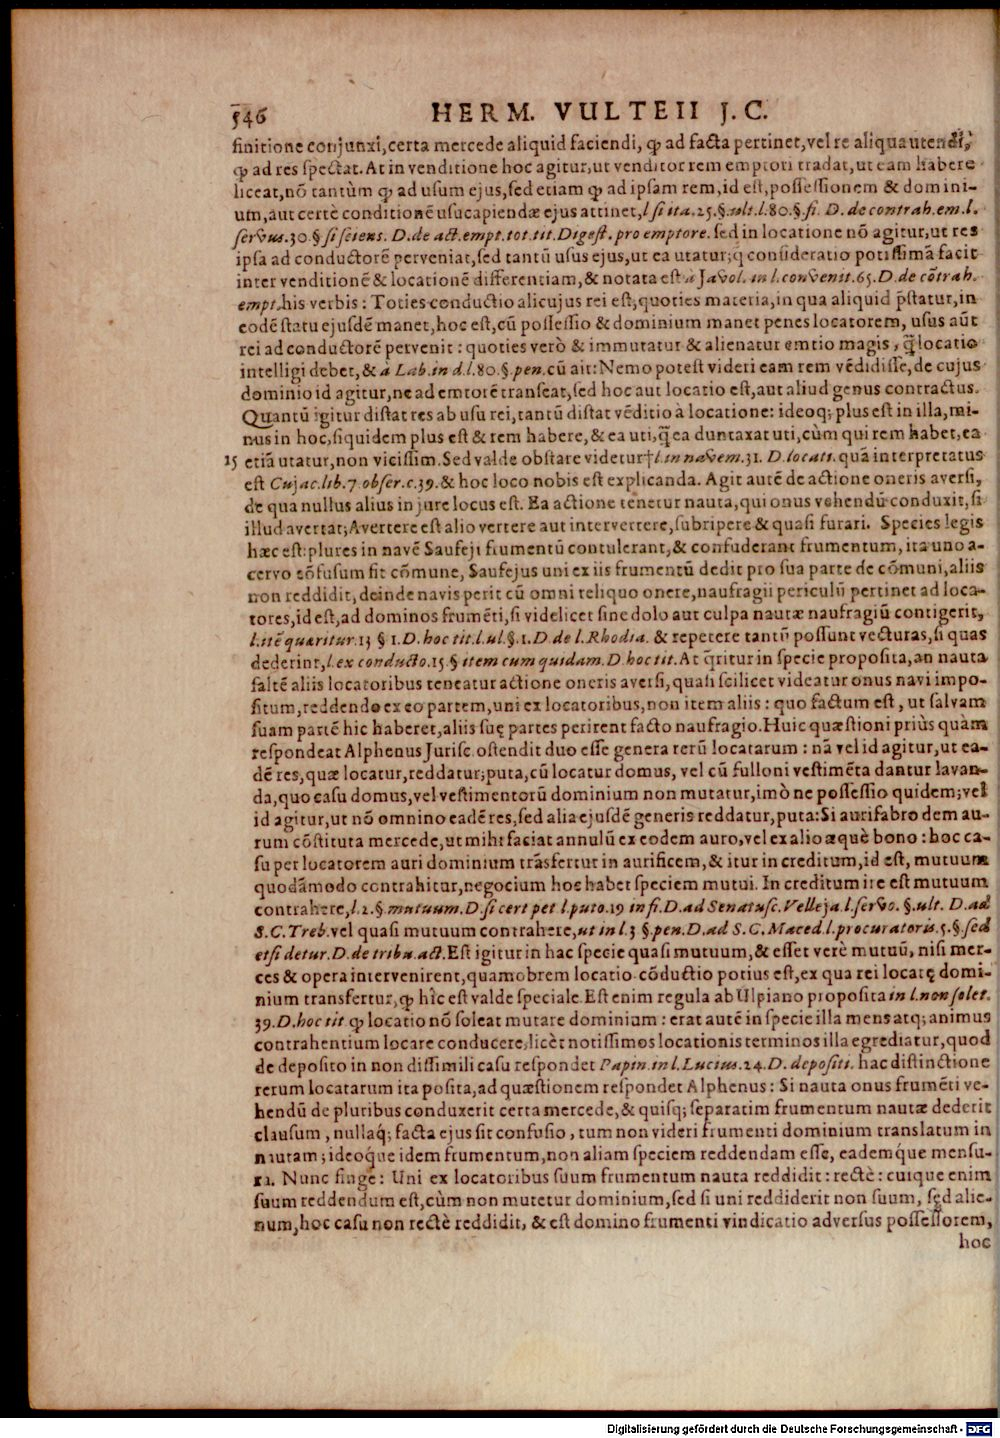 546 HERM. VULTEII J. C.
finitione conjunxi, certa mercede aliquid faciendi, ꝙ ad facta pertinet, vel re aliqua utendi,
ꝙ ad res spectat. At in venditione hoc agitur, ut venditor rem emptori tradat, ut eam habere
liceat, nō tantùm ꝙ ad usum ejus, sed etiam ꝙ ad ipsam rem, id est, possessionem & domini-
um, aut certè conditionē usucapiendæ ejus attinet, l si ita. 25. §. ult. l. 80. §. fi. D. de contrah. em. l.
servus. 30. § si sciens. D. de act. empt. tot. tit. Digest. pro emptore. sed in locatione nō agitur, ut res
ipsa ad conductorē perveniat, sed tantū usus ejus, ut ea utatur; q̃ consideratio potissimā facit
inter venditionē & locationē differentiam, & notata est à Javol. in l. convenit. 65. D. de cōtrah.
empt. his verbis: Toties conductio alicujus rei est, quoties materia, in qua aliquid p̄statur, in
eodē statu ejusdē manet, hoc est, cū possessio & dominium manet penes locatorem, usus aūt
rei ad conductorē pervenit: quoties verò & immutatur & alienatur emtio magis, q̃ locatio
intelligi debet, & à Lab. in d. l. 80. §. pen. cū ait: Nemo potest videri eam rem vēdidisse, de cujus
dominio id agitur, ne ad emtorē transeat, sed hoc aut locatio est, aut aliud genus contractus.
Quantū igitur distat res ab usu rei, tantū distat vēditio à locatione: ideoq; plus est in illa, mi-
nus in hoc, siquidem plus est & rem habere, & ea uti, q̃ ea duntaxat uti, cùm qui rem habet, ea
15 etiā utatur, non vicissim. Sed valde obstare videtur† l. in navem. 31. D. locati. quā interpretatus
est Cujac. lib. 7. obser. c. 39. & hoc loco nobis est explicanda. Agit autē de actione oneris aversi,
de qua nullus alius in jure locus est. Ea actione tenetur nauta, qui onus vehendū conduxit, si
illud avertat; Avertere est alio vertere aut intervertere, subripere & quasi furari. Species legis
hæc est: plures in navē Saufeji frumentū contulerant, & confuderant frumentum, ita uno a-
cervo cōfusum fit cōmune, Saufejus uni ex iis frumentū dedit pro sua parte de cōmuni, aliis
non reddidit, deinde navis perit cū omni reliquo onere, naufragii periculū pertinet ad loca-
tores, id est, ad dominos frumēti, si videlicet sine dolo aut culpa nautæ naufragiū contigerit,
l. itē quæritur. 13 § 1. D. hoc tit. l. ul. §. 1. D. de l. Rhodia. & repetere tantū possunt vecturas, si quas
dederint, l. ex conducto. 15. § item cum quidam. D. hoc tit. At q̃ritur in specie proposita, an nauta
saltē aliis locatoribus teneatur actione oneris aversi, quasi scilicet videatur onus navi impo-
situm, reddendo ex eo partem, uni ex locatoribus, non item aliis: quo factum est, ut salvam
suam partē hic haberet, aliis suę partes perirent facto naufragio. Huic quæstioni priùs quàm
respondeat Alphenus Jurisc. ostendit duo esse genera rerū locatarum: nā vel id agitur, ut ea-
dē res, quæ locatur, reddatur; puta, cū locatur domus, vel cū fulloni vestimēta dantur lavan-
da, quo casu domus, vel vestimentorū dominium non mutatur, imò ne possessio quidem; vel
id agitur, ut nō omnino eadē res, sed alia ejusdē generis reddatur, puta: Si aurifabro dem au-
rum cōstituta mercede, ut mihi faciat annulū ex eodem auro, vel ex alio æquè bono: hoc ca-
su per locatorem auri dominium trāsfertur in aurificem, & itur in creditum, id est, mutuum
quodāmodo contrahitur, negocium hoc habet speciem mutui. In creditum ire est mutuum
contrahere, l. 2. §. mutuum. D. si cert pet l. puto. 19 in fi. D. ad Senatusc. Velleja. l. servo. §. ult. D. ad
S. C. Treb. vel quasi mutuum contrahere, ut in l. 3 §. pen. D. ad S. C. Maced. l. procuratoris. 5. §. sed
etsi detur. D. de tribu. act. Est igitur in hac specie quasi mutuum, & esset verè mutuū, nisi mer-
ces & opera intervenirent, quamobrem locatio cōductio potius est, ex qua rei locatę domi-
nium transfertur, ꝙ hîc est valde speciale. Est enim regula ab Ulpiano proposita in l. non solet.
39. D. hoc tit ꝙ locatio nō soleat mutare dominium: erat autē in specie illa mens atq; animus
contrahentium locare conducere, licèt notissimos locationis terminos illa egrediatur, quod
de deposito in non dissimili casu respondet Papin. in l. Lucius. 24. D. depositi. hac distinctione
rerum locatarum ita posita, ad quæstionem respondet Alphenus: Si nauta onus frumēti ve-
hendū de pluribus conduxerit certa mercede, & quisq; separatim frumentum nautæ dederit
clausum, nullaq́; facta ejus sit confusio, tum non videri frumenti dominium translatum in
nautam; ideoq́ue idem frumentum, non aliam speciem reddendam esse, eademq́ue mensu-
ra. Nunc finge: Uni ex locatoribus suum frumentum nauta reddidit: rectè: cuique enim
suum reddendum est, cùm non mutetur dominium, sed si uni reddiderit non suum, sed alie-
num, hoc casu non rectè reddidit, & est domino frumenti vindicatio adversus possessorem,
hoc
Digitalisierung gefördert durch die Deutsche Forschungsgemeinschaft - DFG